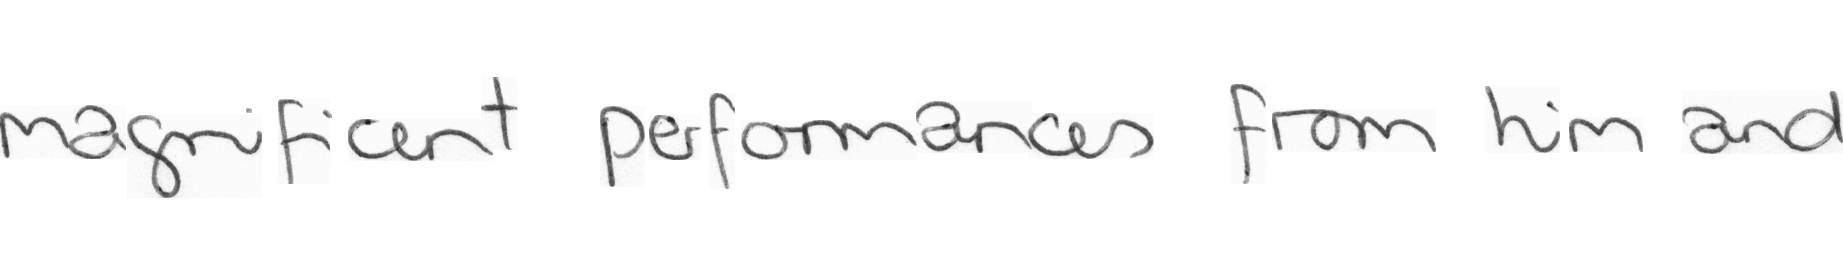 magnificent performances from him and